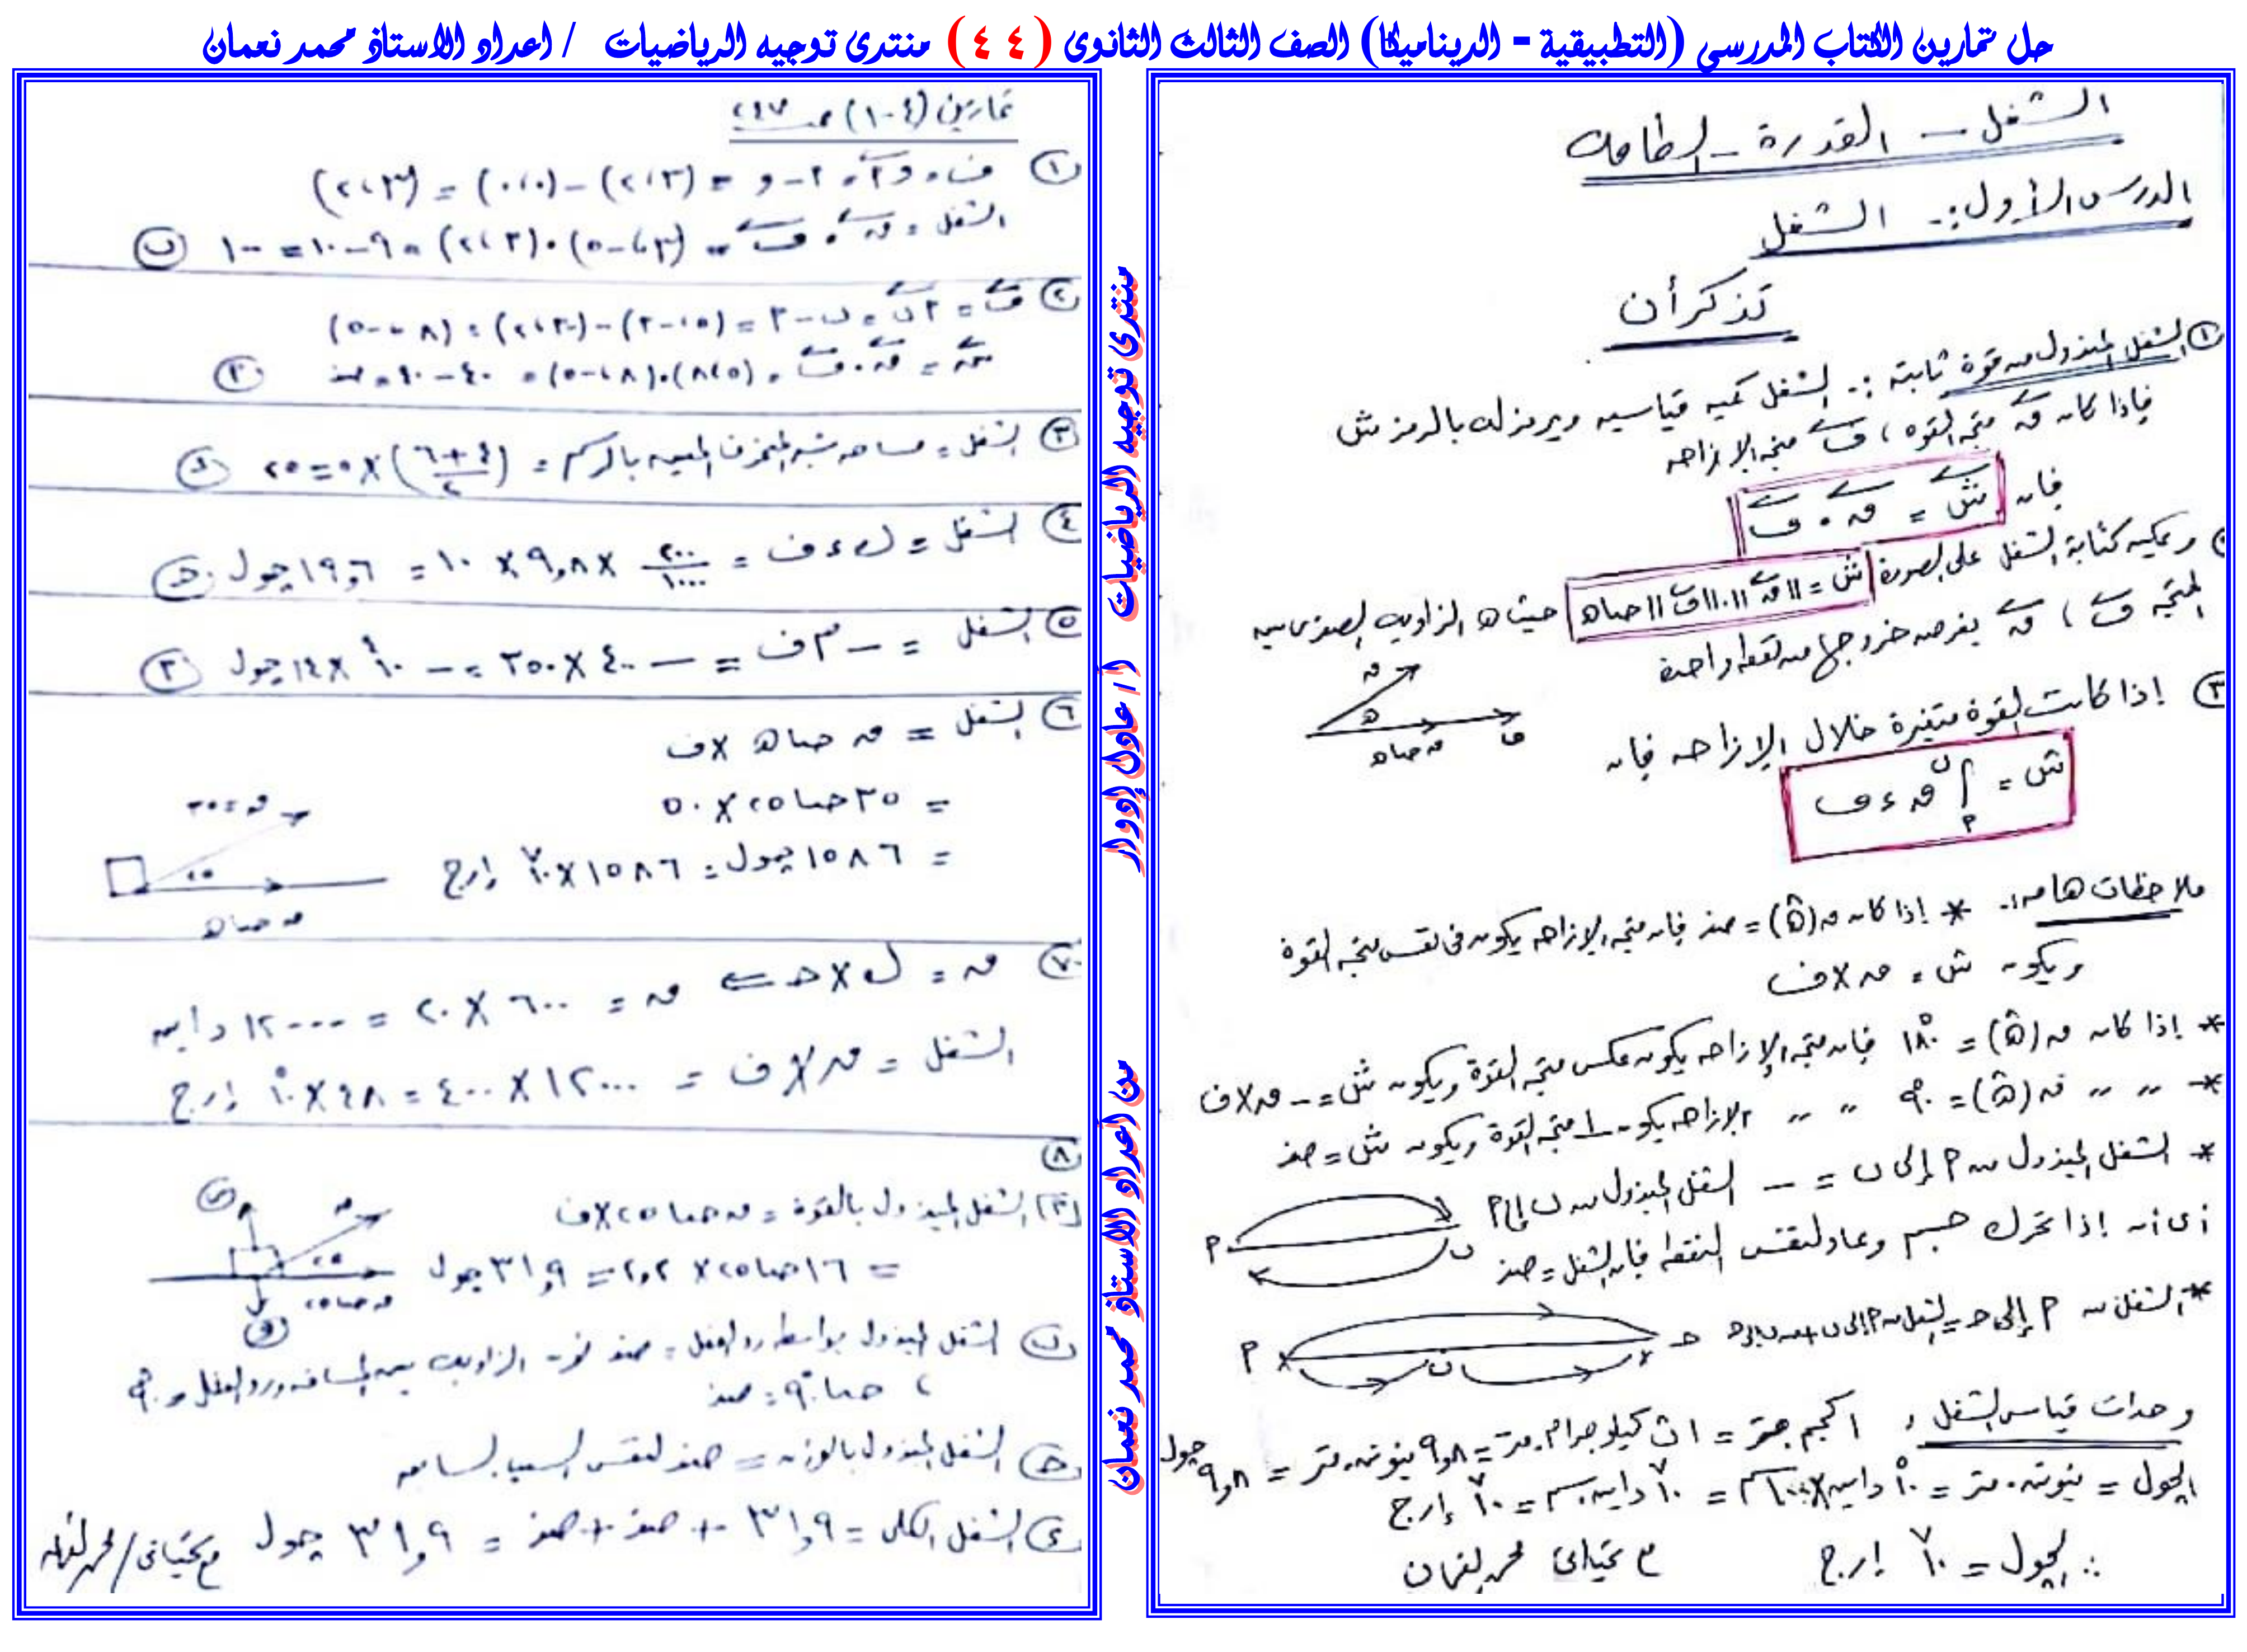 حل تمارين الكتاب المدرسي (التطبيقية - الديناميكا) الصف الثالث الثانوى (٤٤) منتدى توجيه الرياضيات / اعداد الاستاذ محمد نعمان
الشغل – القدرة – الطاقة
الدرس الأول :- الشغل
تذكر أن
① الشغل المبذول من قوة ثابتة :- الشغل كمية قياسية ويرمز له بالرمز ش
فإذا كان ق متجه القوة ، ف متجه الإزاحه
فإن ش = ق . ف
ويمكن كتابة الشغل على الصورة ش = ||ق|| . ||ف|| حتا هـ حيث هـ الزاوية الصغرى بين
المتجه ف ، ق بفرض خروجها من نقطة واحدة
ق
هـ
ق حتا هـ ف
③ إذا كانت القوة متغيرة خلال الإزاحه فإن
ش = ∫ ق ء ف
ملاحظات هامه:- * إذا كان ق(هـ) = صفر فإن متجه الإزاحه يكون فى نفس متجه القوة
ويكون ش = ق × ف
* إذا كان ق(هـ) = ١٨٠° فإن متجه الإزاحه يكون عكس متجه القوة ويكون ش = - ق × ف
* " " ق(هـ) = ٩٠° " " الإزاحه يكون ⊥ متجه القوة ويكون ش = صفر
* الشغل المبذول من P إلى ں = - الشغل المبذول من ں إلى P
أى أنه إذا تحرك جسم وعاد لنفس النقطة فإن الشغل = صفر
P ں
* الشغل من P إلى حـ = الشغل من P إلى ں + من ں إلى حـ
P ں حـ
وحدات قياس الشغل : ١ كجم.متر = ١ ث كيلو جرام.متر = ٩,٨ نيوتن.متر = ٩,٨ جول
الجول = نيوتن.متر = ١٠^٥ داين × ١٠٠ سم = ١٠^٧ داين.سم = ١٠^٧ إرج
∴ الجول = ١٠^٧ إرج
مع تحياتى محمد نعمان
تمارين (٤-١) صـ ٢٤٧
① ف = و P = P - و = (٣، ٢) - (٠، ٠) = (٣، ٢)
الشغل = ق . ف = (٣، -٥) . (٣، ٢) = ٩ - ١٠ = -١ ⓑ
② ف = P ں = ں - P = (٥، -٣) - (-٣، ٢) = (٨، -٥)
ش = ق . ف = (٥، ٨) . (٨، -٥) = ٤٠ - ٤٠ = صفر Ⓟ
③ الشغل = مساحه شبه المنحرف المبينه بالرسم = (٤+٦/٢) × ٥ = ٢٥ ⓓ
④ الشغل = ك ء ف = ٢٠٠/١٠٠٠ × ٩,٨ × ١٠ = ١٩,٦ جول ⓒ
⑤ الشغل = - م ف = - ٤٠٠ × ٣٥٠ = - ١٤ × ١٠^٤ جول Ⓟ
⑥ الشغل = ق حتا هـ × ف
= ٣٥ حتا ٢٥ × ٥٠
= ١٥٨٦ جول = ١٥٨٦ × ١٠^٧ إرج
ق = ٣٥
٢٥
ق حتا هـ
⑦ ق = ك × حـ ⇐ ق = ٦٠٠ × ٢٠ = ١٢٠٠٠ داين
الشغل = ق × ف = ١٢٠٠٠ × ٤٠٠ = ٤٨ × ١٠^٥ إرج
⑧
(P) الشغل المبذول بالقوة = ق حتا ٢٥ × ف
= ١٦ حتا ٢٥ × ٢,٢ = ٣١,٩ جول
ق
٢٥
ق حتا ٢٥
و
(ں) الشغل المبذول بواسطة رد الفعل = صفر لأن الزاوية بين المسافه ورد الفعل هى ٩٠°
، حتا ٩٠° = صفر
(حـ) الشغل المبذول بالوزن = صفر لنفس السبب السابق
(ء) الشغل الكلى = ٣١,٩ + صفر + صفر = ٣١,٩ جول
مع تحياتى / محمد نعمان
منتدى توجيه الرياضيات أ / عاول إووار
من أعداو الاستاؤ محمد نعمان